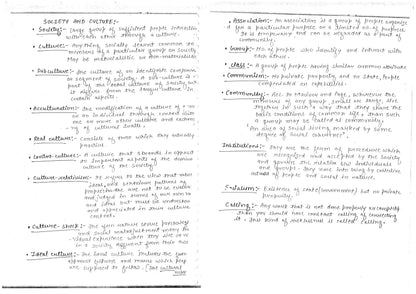 SOCIETY AND CULTURE:-
• Society:- Large group of people interact
with each other through a culture.
• Culture:- Anything socially learnt common to
members of a particular group or society.
May be materialistic or non-materialistic
• Subculture:- The culture of an identifiable
segment of society. A sub culture is
part of the total culture of society but
it differs from the larger culture in
certain aspects.
• Acculturation:- The modification of a culture of
an individual through contact with
one or more other cultures and
of cultural traits.
• Real culture:- Consists of those which they actually
practice.
• Contra-culture:- A culture that stands in opposition
to important aspects of the
culture of the society
• Culture-relativism:- It refers to the idea that
behaviour patterns of
are not to be valued
and judged in terms of our norms
and ideal but must be understood
and appreciated in their culture
context.
• Culture-shock:-
and social maladjustment every
experience when they
a society different from their own
• Ideal culture:- The ideal culture includes the
approved culture and norms which people
are supposed to follow.
• Association:- An association is a group of people organised
for a particular purpose or a limited no. of purposes.
It is temporary and can be regarded as a part of
community.
• Group:- No. of people who identify and interact with
each other.
• Class:- A group of people having similar common attitude
• Communism:- No private property and no state, people
compensated on
• Community:- Acc. to MacIver and Page, whenever the
members of any group, small or large, live
together in such a way that they share the
basic conditions of common life, then such
a group may be called as community.
"An area of social living marked by some
degree of social coherence".
Institutions:- They are the form of procedure which
are recognised and accepted by the society
and govern the relation b/w individuals
and groups. They come into being by collective
of people and social in nature.
Socialism:- Existence of state (government) but no private
property.
Calling:- Any work that is not done properly or completely
then you should have constant calling of correcting
it. This kind of mechanism is called calling.